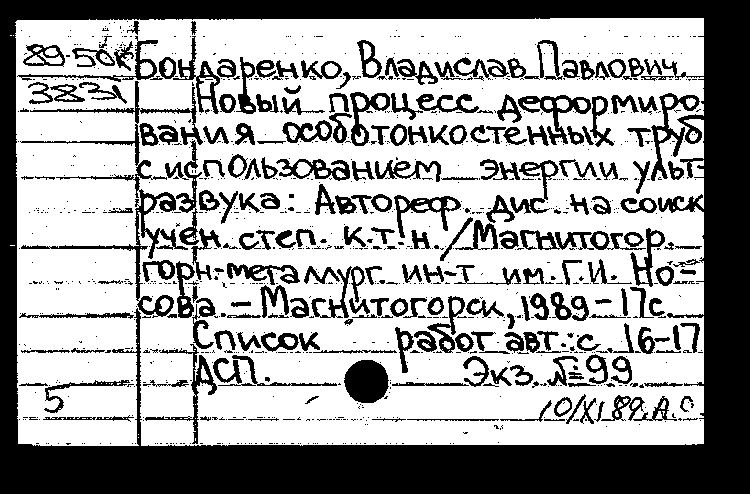 89-50к Бондаренко, Владислав Павлович.
3831 Новый процесс деформиро-
вания особотонкостенных труб
с использованием энергии ульт-
развука: Автореф. дис. на соиск
учен. степ. к.т.н. / Магнитогор.
горн.-металлург. ин-т им. Г.И. Но-
сова. – Магнитогорск, 1989 – 17с.
Список работ авт.: с. 16-17
ДСП. Экз. №99
5 10/XI 89. А.С.